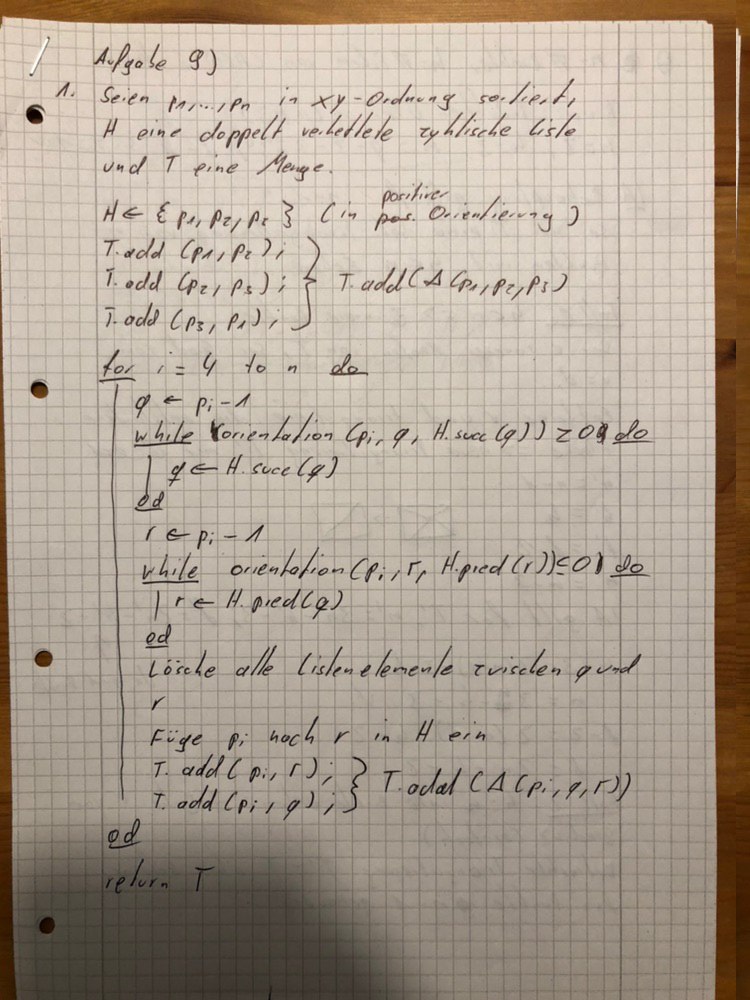 Aufgabe 9)
1. Seien p1,...,pn in xy-Ordnung sortiert,
H eine doppelt verkettete zyklische Liste
und T eine Menge.
positiver
H ← { p1, p2, p2 } ( in pos. Orientierung )
T.add (p1, p2);
T.add (p2, p3); } T.add(Δ(p1,p2,p3)
T.add (p3, p1);
for i = 4 to n do
q ← pi-1
while orientation (pi, q, H.succ(q)) ≥ 0 do
q ← H.succ(q)
od
r ← pi-1
while orientation (pi, r, H.pred(r)) ≤ 0 do
r ← H.pred(q)
od
Lösche alle Listenelemente zwischen q und
r
Füge pi nach r in H ein
T. add( pi, r);
T. add(pi, q); } T.add (Δ(pi, q, r))
od
return T